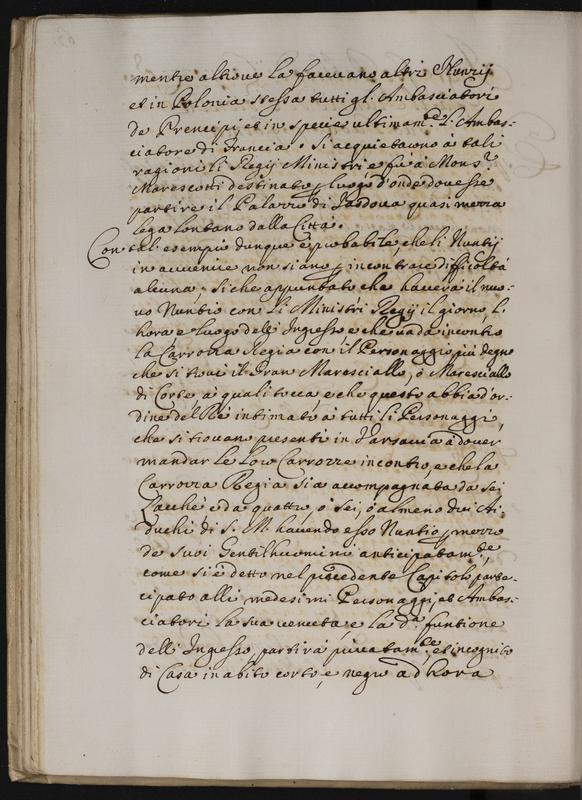 mentre altrove la facevano altri Nunzij
et in Polonia stessa tutti gl. Ambasciatori
de Prencipi, et in specie ultimam.te L'Ambas-
ciatore di Francia. Si acquietarono à tali
ragioni li Regij Ministri e fù à Mons.r
Marescotti destinato p luogo d'onde dovesse
partire il Palazzo di Jasdova quasi mezza
lega lontano dalla Città.
Con tal. esempio dunque è probabile che li Nuntij
in avvenire non siano p incontrare difficoltà
alcuna; si che appuntato che haverà il nuo-
vo Nuntio con li Ministri Regij il giorno, l.
hora e luogo dell Ingresso e che vada incontro
la Carrozza Regia con il Personaggio più degno
che si trovi il Gran Maresciallo, ò Maresciallo
di Corte, à quali tocca e che questo abbia d'or-
dine del Rè intimato à tutti li Personaggi,
che si trovano presenti in Varsavia à dover
mandar le loro Carrozze incontro, e che la
Carrozza Regia sia accompagnata da sei
Lacchè e da quattro, ò sei, ò almeno dui Ai-
duchi di S. M. havendo esso Nuntio p mezzo
de suoi Gentilhuomini anticipatam.te
come si è detto nel precedente Capitolo parte-
cipato alli medesimi Personaggi, et Ambas-
ciatori la sua venuta, e la d.a funtione
dell Ingresso, partirà privatam.te, et incognito
di Casa in abito corto, e negro ad hora